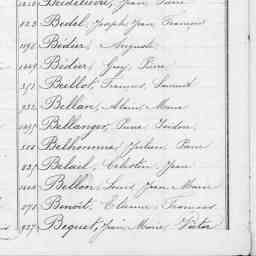 Bedel, Joseph Jean François
1190 Bédier, Auguste
1449 Bédier, Guy, Pierre
Beillot, François,
932 Bellan, Alain Marie
1495 Bellanger, Pierre Isidore
Belhomme, Julien, Pierre
Belail, Célestin Jean
Bellon, Louis, Jean Marie
Benoit, Etienne, François
927 Bequet, Jean Marie, Victor